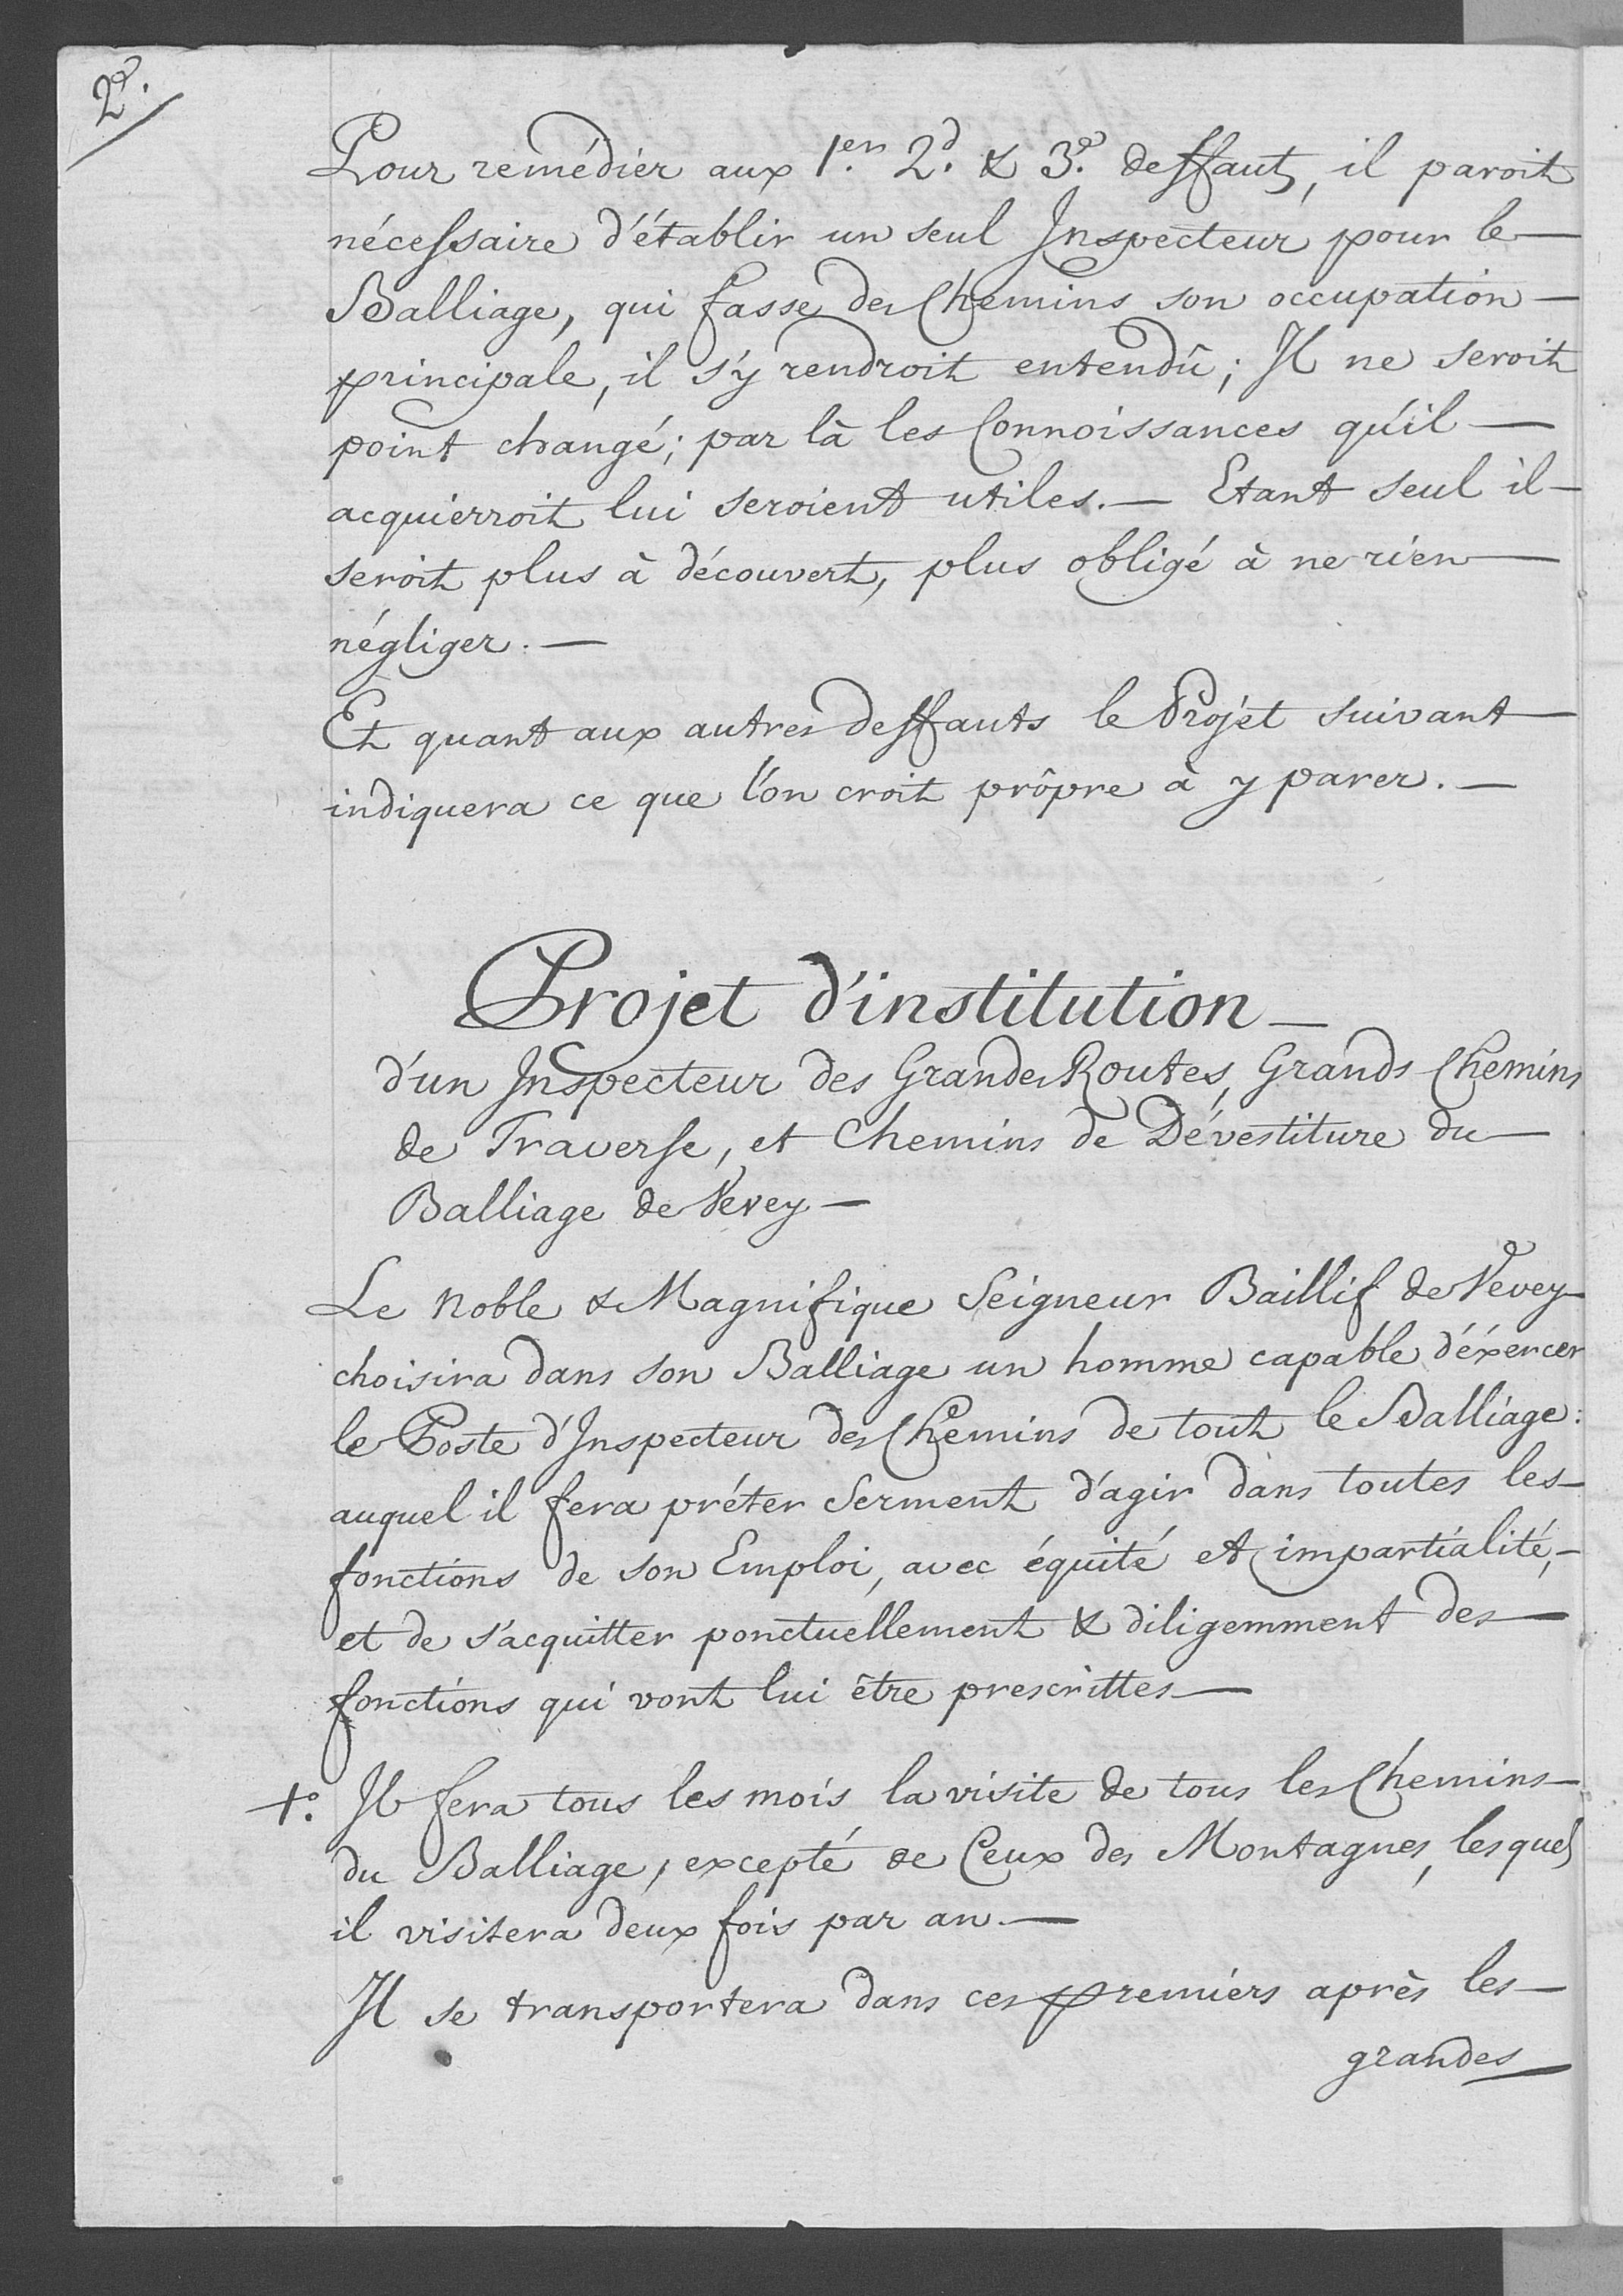 2e.
Pour remédier aux 1.er 2.d & 3.e deffauts, il paroit
nécessaire d'établir un seul Inspecteur pour le —
Balliage, qui fasse des Chemins son occupation —
principale, il s'y rendroit entendû; Il ne seroit
point changé; par là les Connoissances qu'il —
acquierroit lui seroient utiles. — Etant seul il —
seroit plus à découvert, plus obligé à ne rien —
négliger. —
Et quant aux autres deffauts le Projet suivant —
indiquera ce que l'on croit prôpre à y parer. —
Projet d'institution —
d'un Inspecteur des Grandes Routes, Grands Chemins
de Traverse, et Chemins de Dévestiture du —
Balliage de Vevey —
Le Noble & Magnifique Seigneur Baillif de Vevey
choisira dans son Balliage un homme capable d'éxercer
le Poste d'Inspecteur des Chemins de tout le Balliage:
auquel il fera préter Serment d'agir dans toutes les —
fonctions de son Emploi, avec équité et impartialité, —
et de s'acquitter ponctuellement & diligemment des —
fonctions qui vont lui être prescrittes —
1.o Il fera tous les mois la visite de tous les Chemins —
du Balliage, excepté de Ceux des Montagnes, lesquels
il visitera deux fois par an. —
Il se transportera dans ces premiers après les —
grandes